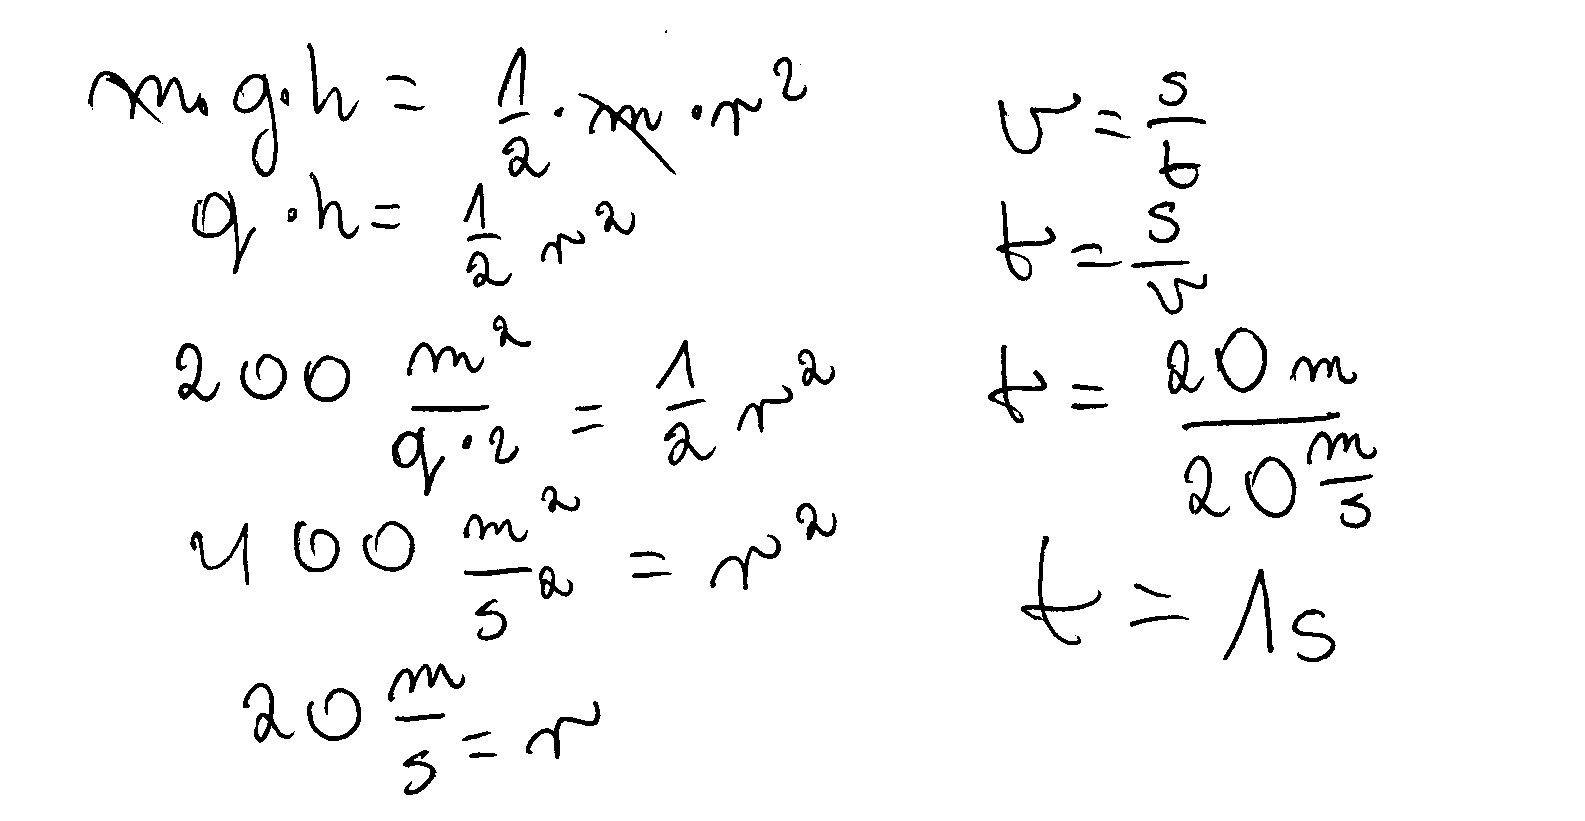 m·g·h = 1/2 · m · v²
g·h = 1/2 v²
200 m²/g·2 = 1/2 v²
400 m²/s² = v²
20 m/s = v
v = s/t
t = s/v
t = 20 m / 20 m/s
t = 1s